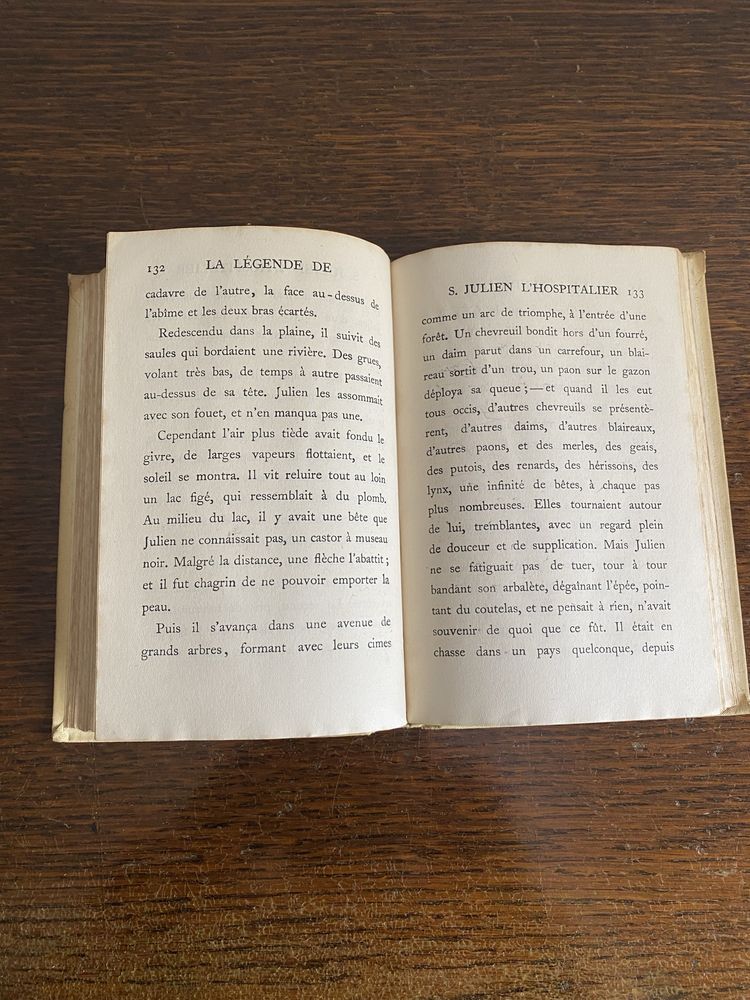 132 LA LÉGENDE DE
cadavre de l'autre, la face au-dessus de
l'abîme et les deux bras écartés.
Redescendu dans la plaine, il suivit des
saules qui bordaient une rivière. Des grues,
volant très bas, de temps à autre passaient
au-dessus de sa tête. Julien les assommait
avec son fouet, et n'en manqua pas une.
Cependant l'air plus tiède avait fondu le
givre, de larges vapeurs flottaient, et le
soleil se montra. Il vit reluire tout au loin
un lac figé, qui ressemblait à du plomb.
Au milieu du lac, il y avait une bête que
Julien ne connaissait pas, un castor à museau
noir. Malgré la distance, une flèche l'abattit ;
et il fut chagrin de ne pouvoir emporter la
peau.
Puis il s'avança dans une avenue de
grands arbres, formant avec leurs cimes
S. JULIEN L'HOSPITALIER 133
comme un arc de triomphe, à l'entrée d'une
forêt. Un chevreuil bondit hors d'un fourré,
un daim parut dans un carrefour, un blai-
reau sortit d'un trou, un paon sur le gazon
déploya sa queue ; — et quand il les eut
tous occis, d'autres chevreuils se présentè-
rent, d'autres daims, d'autres blaireaux,
d'autres paons, et des merles, des geais,
des putois, des renards, des hérissons, des
lynx, une infinité de bêtes, à chaque pas
plus nombreuses. Elles tournaient autour
de lui, tremblantes, avec un regard plein
de douceur et de supplication. Mais Julien
ne se fatiguait pas de tuer, tour à tour
bandant son arbalète, dégaînant l'épée, poin-
tant du coutelas, et ne pensait à rien, n'avait
souvenir de quoi que ce fût. Il était en
chasse dans un pays quelconque, depuis